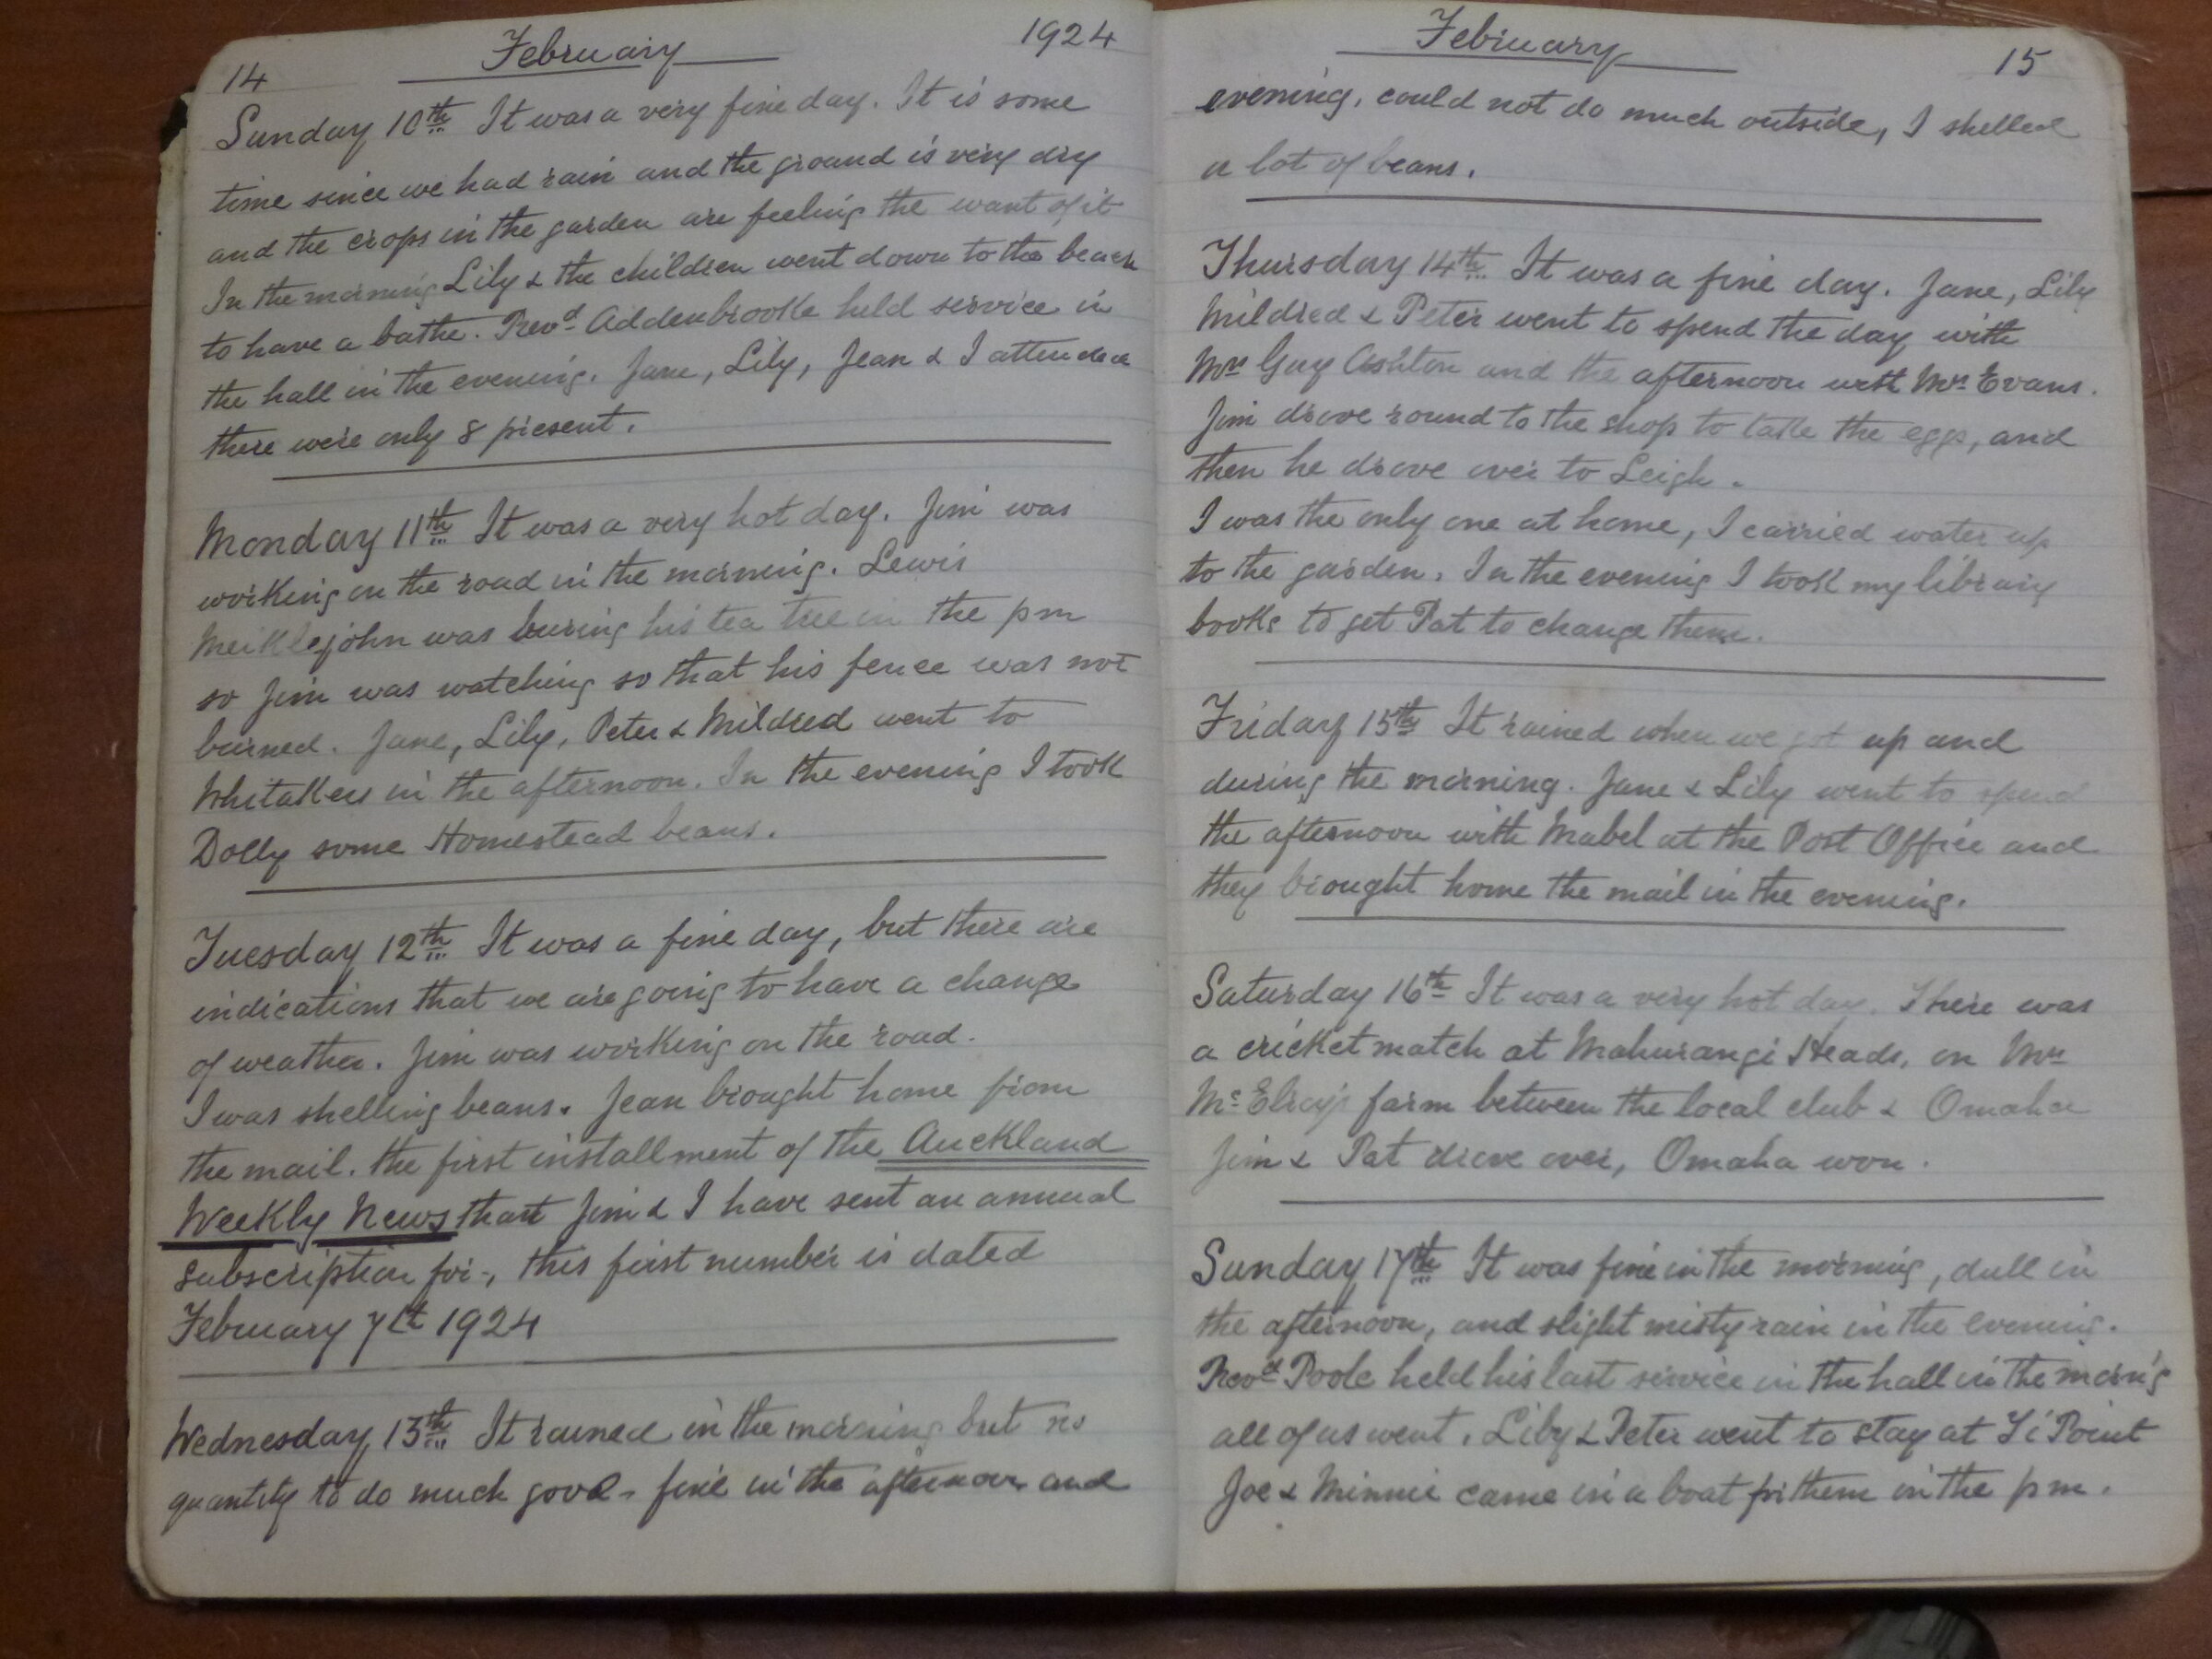 14 February 1924
Sunday 10th It was a very fine day. It is some
time since we had rain and the ground is very dry
and the crops in the garden are feeling the want of it
In the morning Lily & the children went down to the beach
to have a bathe. Revd Addenbrooke held service in
the hall in the evening. Jane, Lily, Jean & I attended
there were only 8 present.
Monday 11th It was a very hot day. Jim was
working on the road in the morning. Lewis
Meiklejohn was buring his tea tree in the pm
so Jim was watching so that his fence was not
burned. Jane, Lily, Peter & Mildred went to
Whitakers in the afternoon. In the evening I took
Dolly some Homestead beans.
Tuesday 12th It was a fine day, but there are
indications that we are going to have a change
of weather. Jim was working on the road.
I was shelling beans. Jean brought home from
the mail. the first installment of the Auckland
Weekly News that Jim & I have sent an annual
subscription for-, this first number is dated
February 7th 1924
Wednesday 13th It rained in the morning but no
quantity to do much good - fine in the afternoon and
February 15
evening, could not do much outside, I shelled
a lot of beans.
Thursday 14th It was a fine day. Jane, Lily
Mildred & Peter went to spend the day with
Mrs Guy Ashton and the afternoon with Mrs Evans.
Jim drove round to the shop to take the eggs, and
then he drove over to Leigh.
I was the only one at home, I carried water up
to the garden. In the evening I took my library
books to get Pat to change them.
Friday 15th It rained when we got up and
during the morning. Jane & Lily went to spend
the afternoon with Mabel at the Post Office and
they brought home the mail in the evening.
Saturday 16th It was a very hot day. There was
a cricket match at Mahurangi Heads, on Mrs
McElroy's farm between the local club & Omaha
Jim & Pat drove over, Omaha won.
Sunday 17th It was fine in the morning, dull in
the afternoon, and slight misty rain in the evening.
Revd Poole held his last service in the hall in the morn'g
all of us went. Lily & Peter went to stay at Ti Point
Joe & Minnie came in a boat for them in the pm.